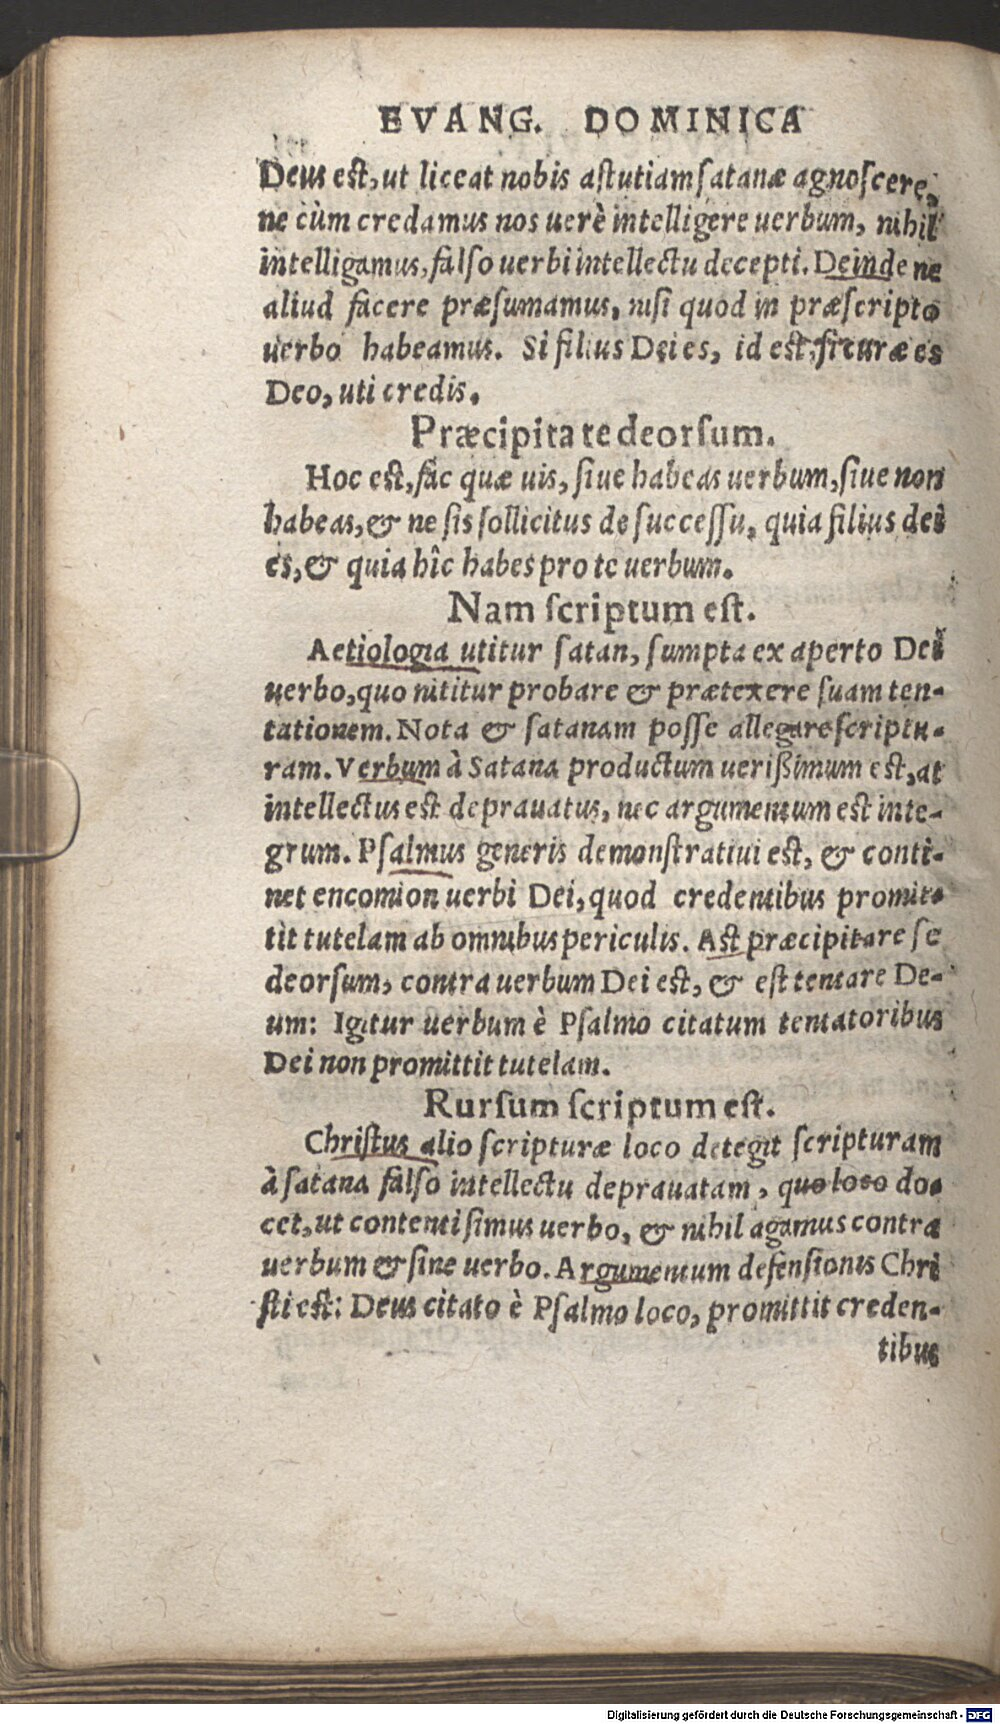 EVANG. DOMINICA
Deus est, ut liceat nobis astutiam satanæ agnoscere,
ne cùm credamus nos uerè intelligere uerbum, nihil
intelligamus, falso uerbi intellectu decepti. Deinde ne
aliud facere præsumamus, nisi quod in præscripto
uerbo habeamus. Si filius Dei es, id est, si curæ es
Deo, uti credis.
Præcipita te deorsum.
Hoc est, fac quæ uis, siue habeas uerbum, siue non
habeas, & ne sis sollicitus de successu, quia filius dei
es, & quia hîc habes pro te uerbum.
Nam scriptum est.
Aetiologia utitur satan, sumpta ex aperto Dei
uerbo, quo nititur probare & prætexere suam ten-
tationem. Nota & satanam posse allegare scriptu-
ram. Verbum à Satana productum uerißimum est, at
intellectus est deprauatus, nec argumentum est inte-
grum. Psalmus generis demonstratiui est, & conti-
net encomion uerbi Dei, quod credentibus promit-
tit tutelam ab omnibus periculis. Ast præcipitare se
deorsum, contra uerbum Dei est, & est tentare De-
um: Igitur uerbum è Psalmo citatum tentatoribus
Dei non promittit tutelam.
Rursum scriptum est.
Christus alio scripturæ loco detegit scripturam
à satana falso intellectu deprauatam, quo loco do-
cet, ut contenti simus uerbo, & nihil agamus contra
uerbum & sine uerbo. Argumentum defensionis Chri
sti est: Deus citato è Psalmo loco, promittit creden-
tibus
Digitalisierung gefördert durch die Deutsche Forschungsgemeinschaft - DFG